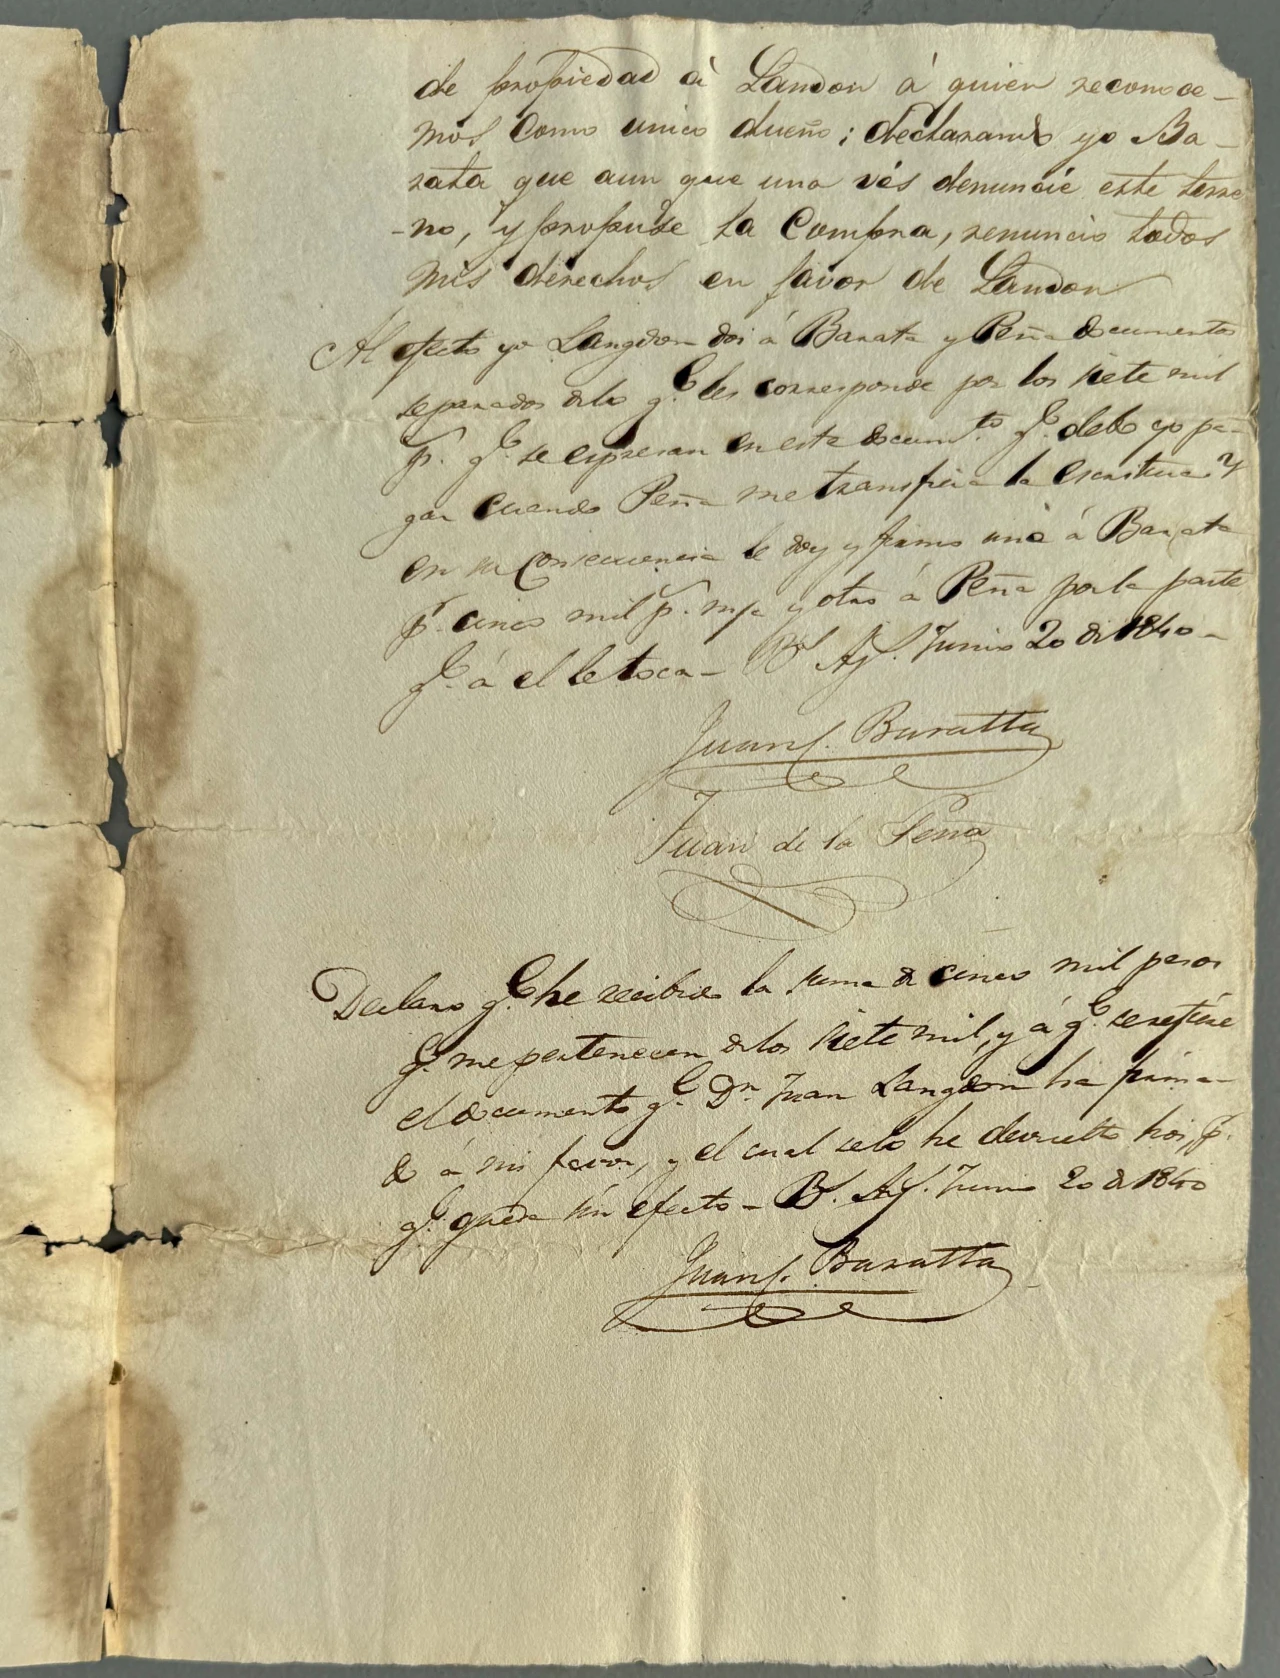 de propiedad à Landon á quien reconoce-
mos Como unico dueño; declarando yo Ba-
rata que aun que una vés denuncié este terre
-no, y propuse la Compra, renuncio todos
mis derechos en favor de Landon
Al efecto yo Langdon doi á Barata y Peña documentos
separados de lo q.e les corresponde por los siete mil
p.s q.e se espresan en este docum.to q.e debo yo pa-
gar cuando Peña me transfiera la escritura y
en su consecuencia le doy y firmo uno á Barata
p.r cinco mil p.s m/c y otro á Peña por la parte
q.e á el le toca - B.s Ay.s Junio 20 de 1840 -
Juan J. Baratta
Juan de la Peña
Declaro q.e he recibido la suma de cinco mil pesos
q.e me pertenecen de los siete mil, y á q.e se refiere
el documento q.e D.n Juan Langdon ha firma-
do á mi favor, y el cual se lo he devuelto hoi, p.r
q.e quede sin efecto - B.s Ay.s Junio 20 de 1840
Juan J. Baratta